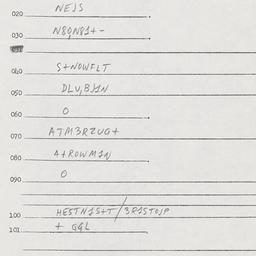 020 NEJS
030 N8QN81+-
040 S+NOWFLT
050 DLV,BJ1N
060 O
070 A7M3RZUG+
080 A+ROWM1N
090 O
100 HESTN1S+T/3R1STOJP
101 + GGL